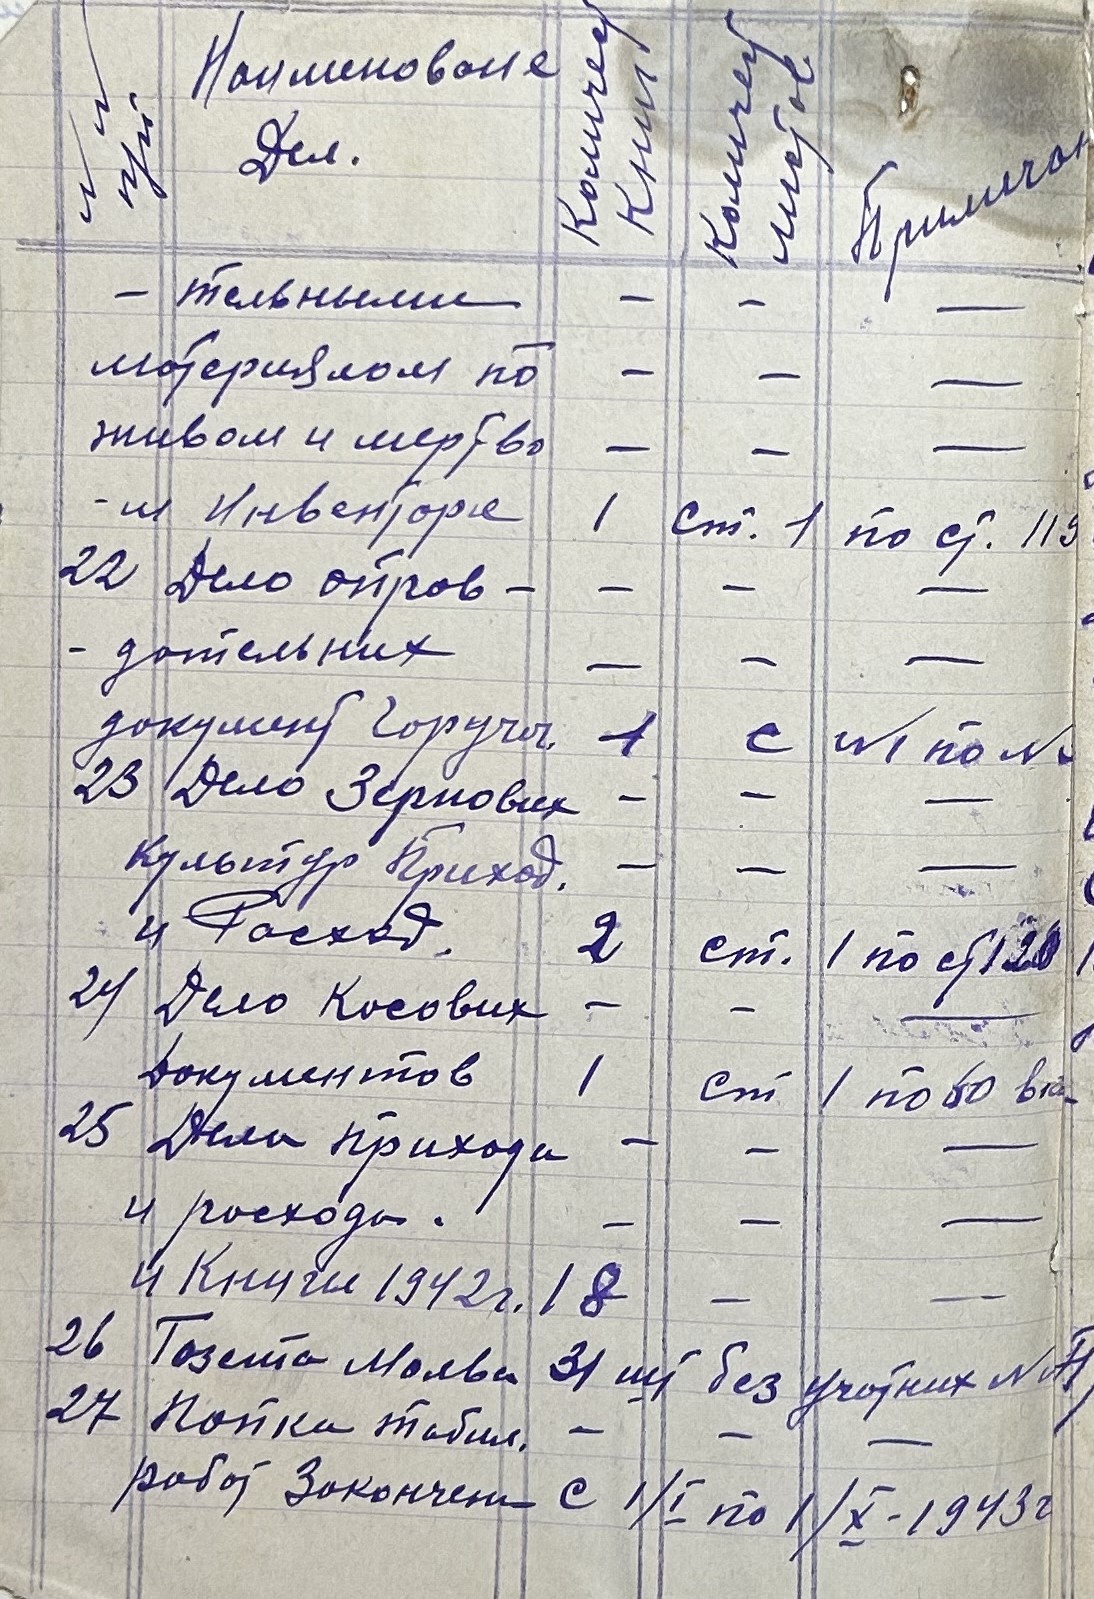 Наименование
Дел.
Количест
Книг
Количест
листов
Примичан
- тельными - - —
материялом по - - —
живом и мертво - - —
-м Инвенторе 1 ст. 1 по ст. 119
22 Дело оправ- - - —
- дательних — - —
документ Горючч. 1 с №1 по №
23 Дело Зернових - - —
культур Приход. - - —
и Расход. 2 ст. 1 по ст 120
24 Дело Косових - - —
Документов 1 ст 1 по 50 вкл-
25 Дела прихода - - —
и расхода. - - —
и Книги 1942г. 18 - —
26 Газета Молва 31 шт без учотних №№
27 Папка табил. - - —
работ Закончени с 1/I по 1/X-1943г